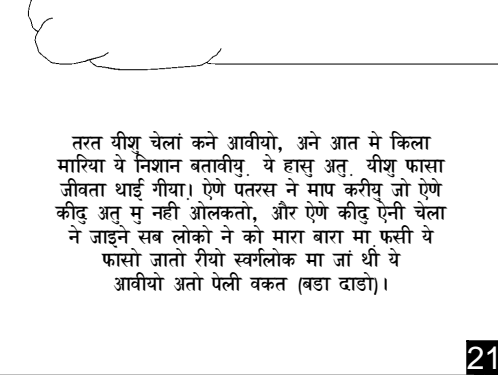 तरत यीशु चेलां कने आवीयो, अने आत मे किला
मारिया ये निशान बतावीयु. ये हासु अतु. यीशु फासा
जीवता थाई गीया। ऐणे पतरस ने माप करीयु जो ऐणे
कीदु अतु मु नही ओलकतो, और ऐणे कीदु ऐनी चेला
ने जाइने सब लोको ने को मारा बारा मा. फसी ये
फासो जातो रीयो स्वर्गलोक मा जां थी ये
आवीयो अतो पेली वकत (बडा दाडो)।
21